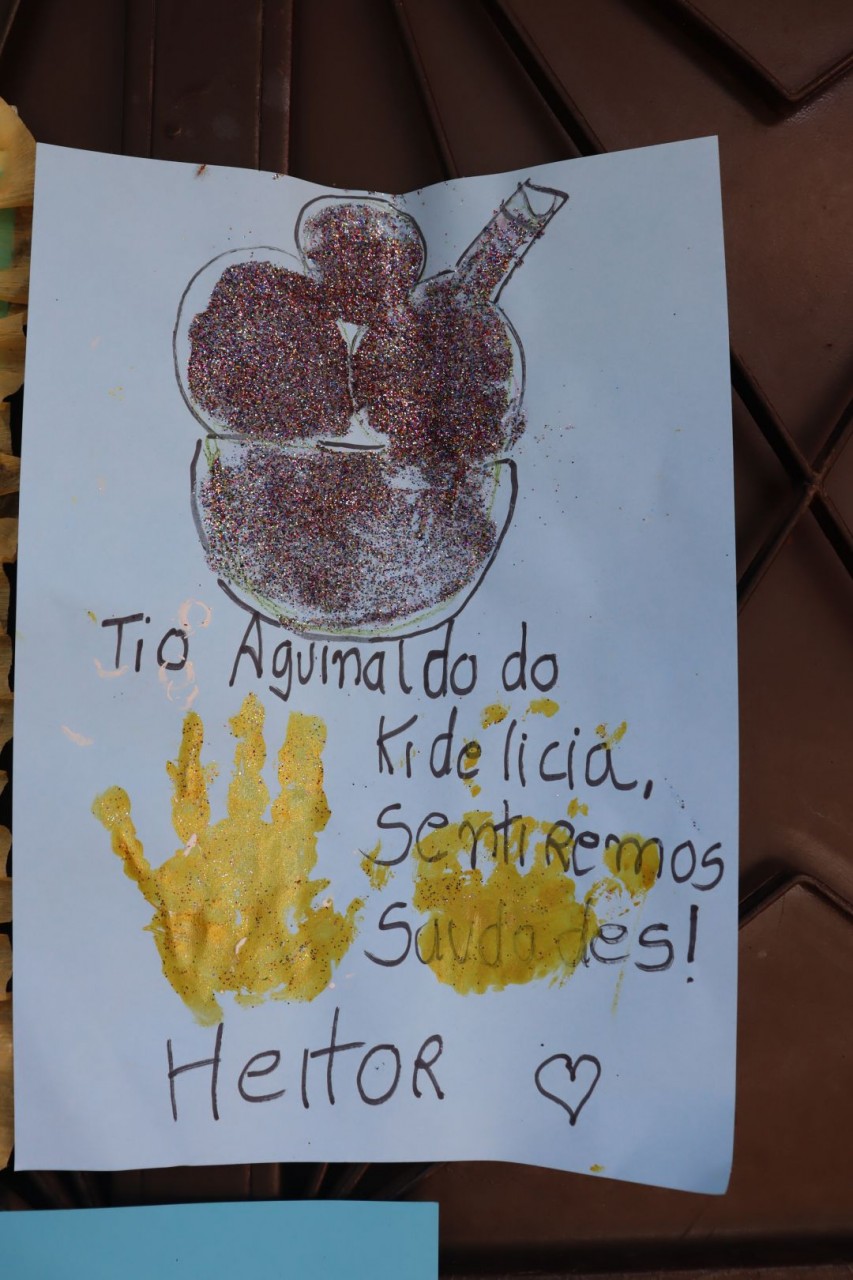 Tio Aguinaldo do
Kidelicia,
Sentiremos
Saudades!
Heitor